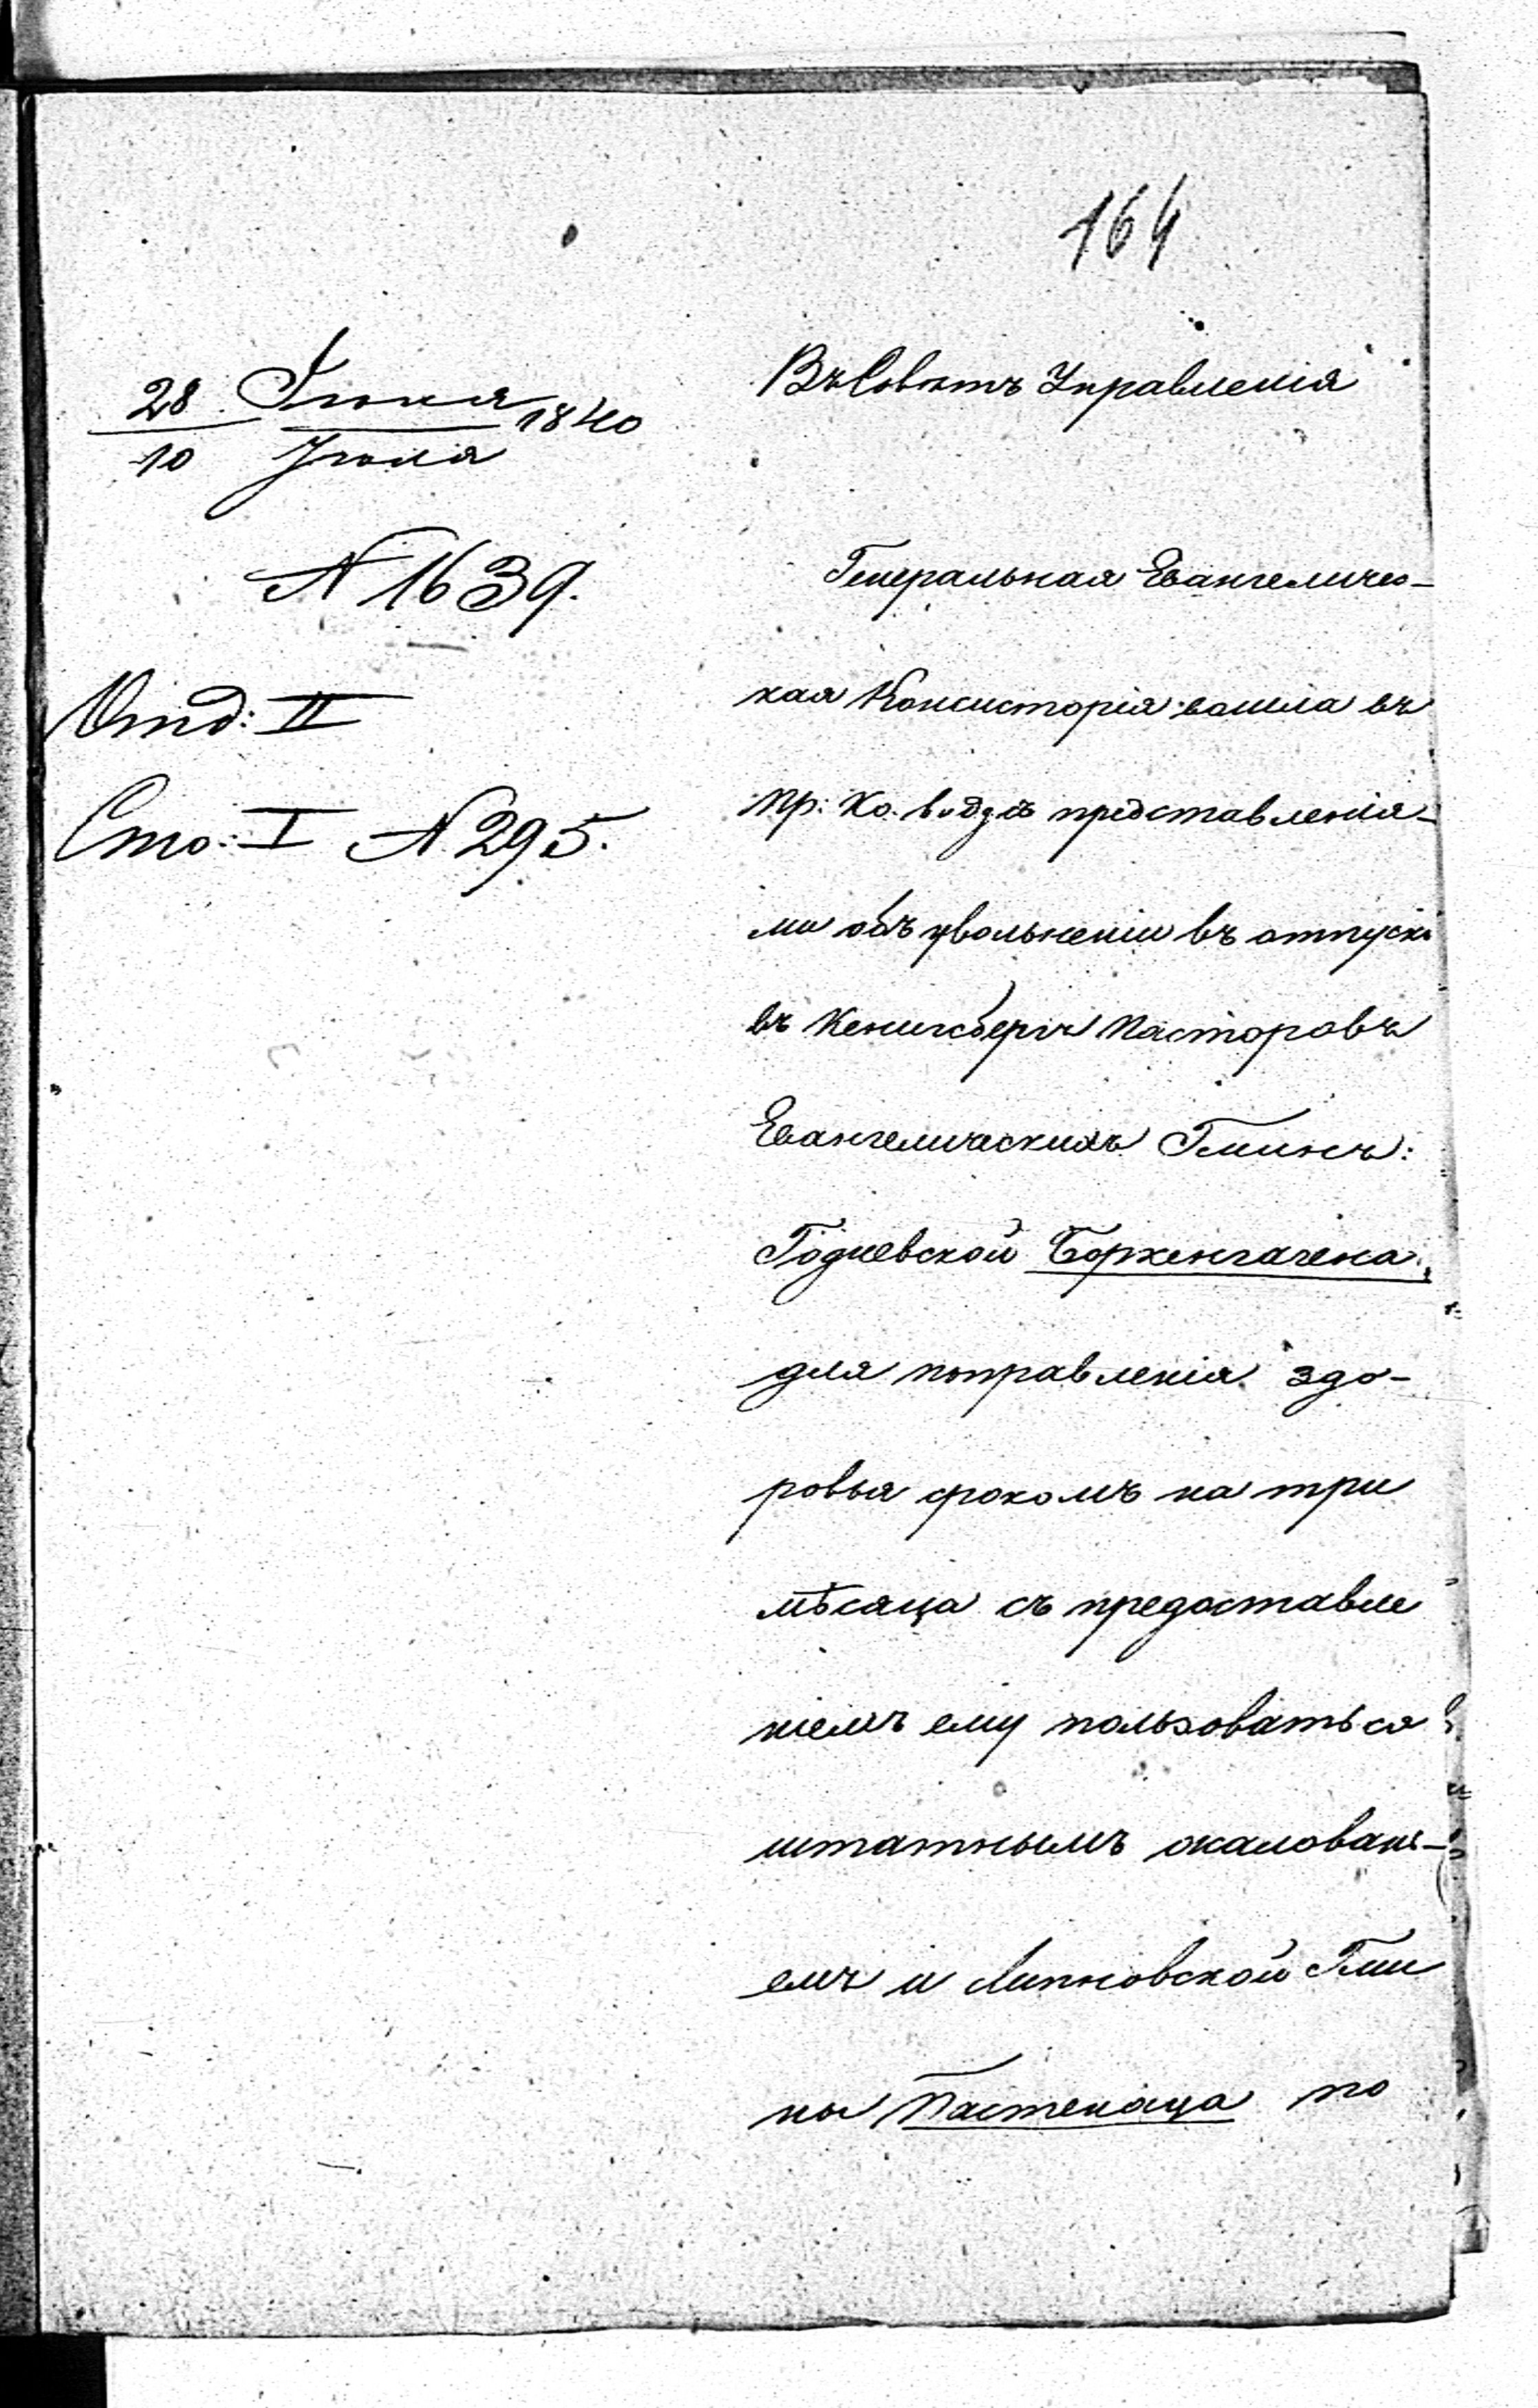 164
28 Іюня 1840
10 Іюля
Въ Совѣтъ Управленія
N 1639.
Генеральная Евангеличес-
Отд: II
кая Консисторія вошла въ
Сто: I N 295.
пр: Ко. в. д. представленія-
ми объ увольненіи въ отпускъ
въ Кенигсбергъ Пасторовъ
Евангелическихъ Гминъ:
Годлевской Боркенгагена,
для поправленія здо-
ровья срокомъ на три
мѣсяца съ предоставле
ніемъ ему пользоваться
штатнымъ жаловань-
емъ и Липновской Гми
ны Пастенаца по